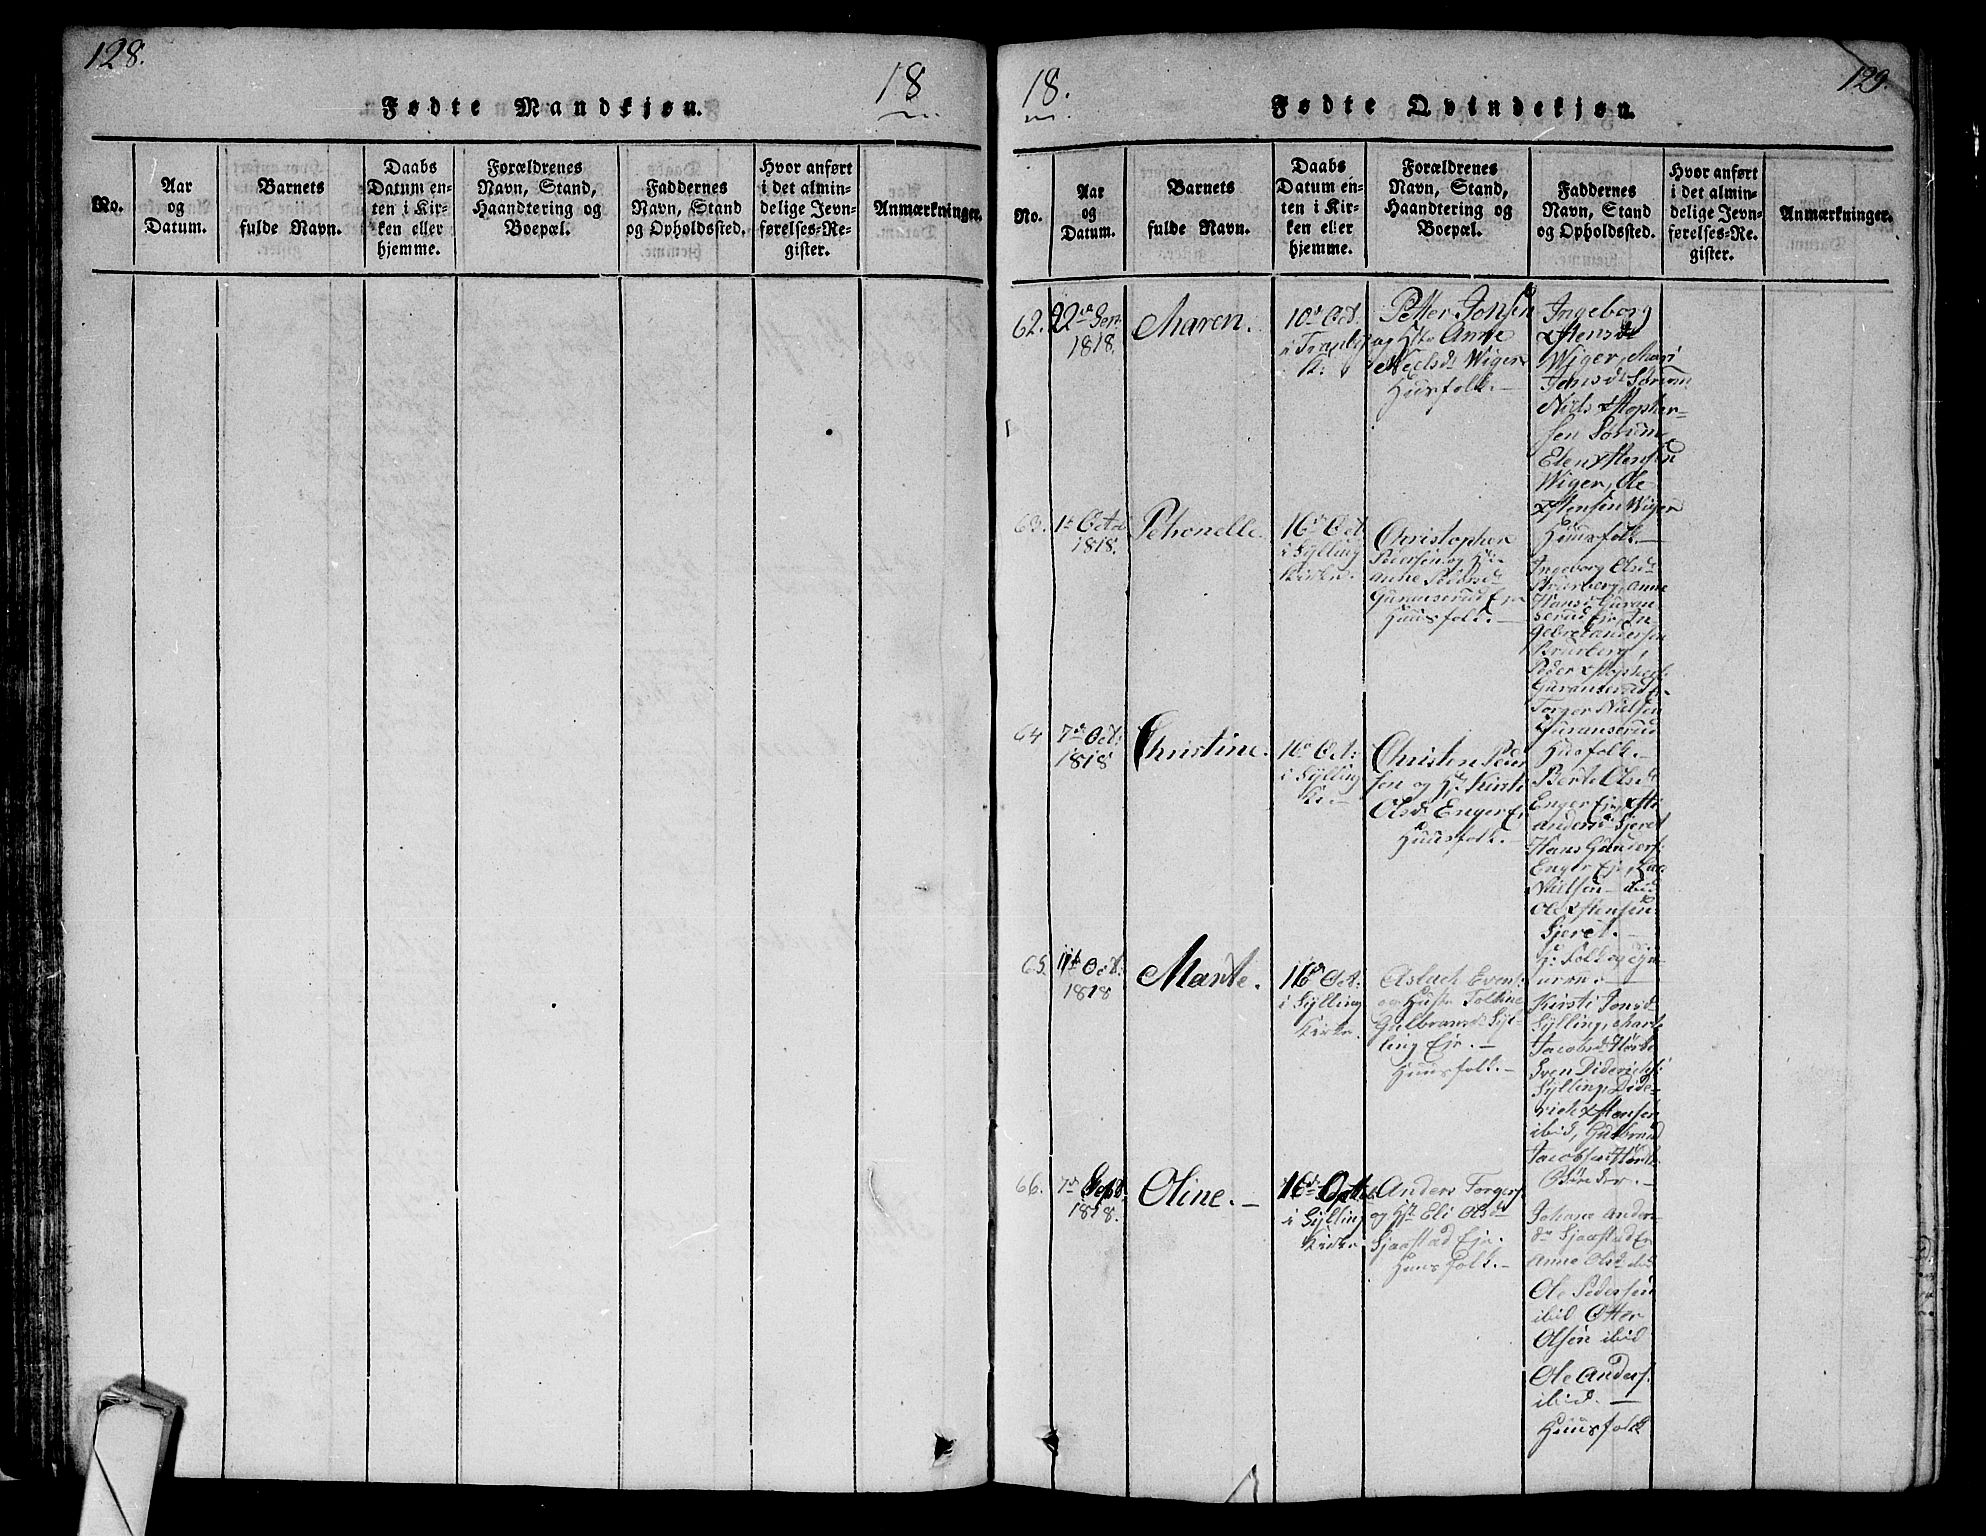 128.
18
Fødte Mandkjøn.
No.
Aar
og
Datum.
Barnets
fulde Navn.
Daabs
Datum en-
ten i Kir-
ken eller
hjemme.
Forældrenes
Navn, Stand,
Haandtering og
Boepæl.
Faddernes
Navn, Stand
og Opholdssted.
Hvor anført
i det almin-
delige Jevn-
førelses-Re-
gister.
Anmærkninger.
18.
129.
Fødte Qvindekjøn.
No.
Aar
og
Datum.
Barnets
fulde Navn.
Daabs
Datum en-
ten i Kir-
ken eller
hjemme.
Forældrenes
Navn, Stand,
Haandtering og
Boepæl.
Faddernes
Navn, Stand
og Opholdssted.
Hvor anført
i det almin-
delige Jevn-
førelses-Re-
gister.
Anmærkninger.
62.
22de Sept.
1818.
Maren.
10de Oct.
i
K:
Petter
og Anne
Nielsd Wiger
Huusfolk.
Ingeborg
Wiger, Mari
Jensd Sørum
Niels xstopher-
sen Sørum,
Elen xstensd
Wiger, Ole
xstensen Wiger
Huusfolk.
63.
1te Octo
1818.
Petronelle.
16de Oct
i Sylling
Kirke.
Christopher
Pedersen og
Anne Pedersd
Guranserud Eje
Huusfolk.
Ingeborg Olsd
Anne
Hans Guran-
serud Eje, In-
gebret andersen
Peder xstophers:
Guranserud E-
Torger Nielsen
Guranserud
Huusfolk.
64
7de Oct:
1818
Christine.
16de Oct:
i Sylling
K.
Christen Peder
sen og Kirsti
Olsdr Enger Ej
Huusfolk.
Berte Olsdr
Enger Ej, xsti
Andersd Sjeret
Hans
Enger Ej,
Nielsen ibid
Ole xstensen
Sjeret.
65.
11te Oct:
1818
Marte.
16de Oct:
i Sylling
Kirke.
Aslach Evens:
og Hustr
Gulbransdr Syl-
ling Eje.
Huusfolk.
Kirsti Jonsd
Sylling, Marte
Jacobsd
Sven Diderichs:
Sylling, Dide-
rich xstensen
ibid, Gulbrand
Jacobsen
Bønder.
66.
7de Sept:
1818.
Oline.
16de Octob
i Sylling
Kirke
Anders Torgers:
og Hst Eli Olsd
Sjaastad Eje.
Huusfolk.
Johane Anders-
dr Sjaastad Ej
Anne Olsd ibid
Ole Pedersen
ibid Otter
Olsen ibid
Ole Anders:
ibid.
Huusfolk